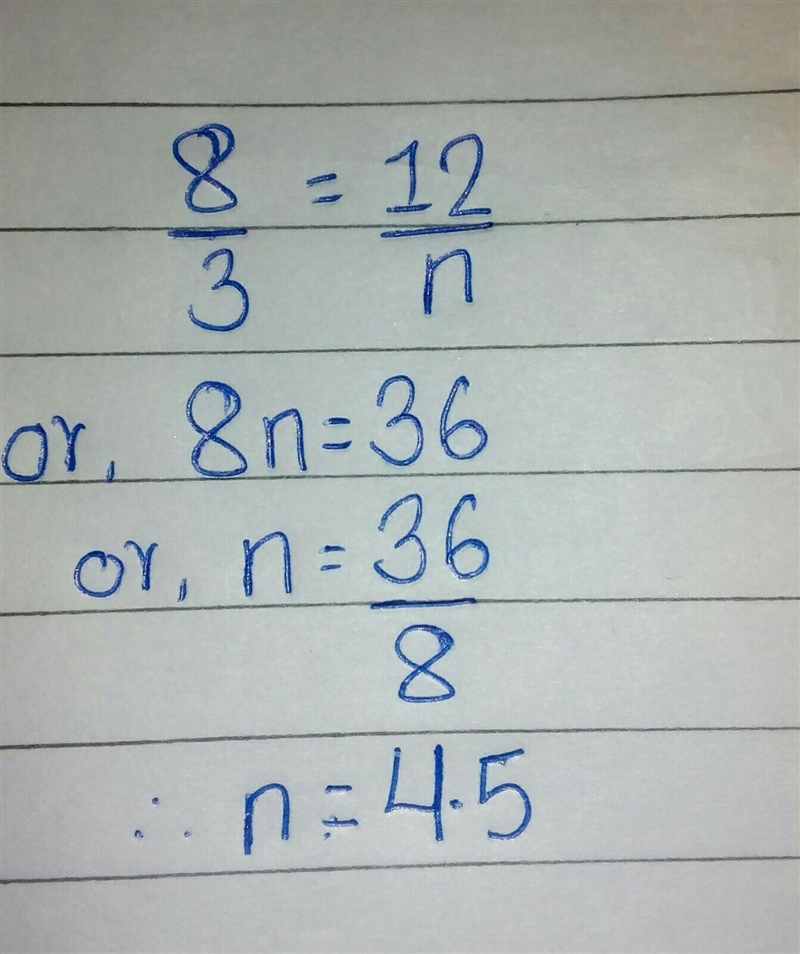 8/3 = 12/n
or, 8n=36
or, n=36/8
∴ n=4.5